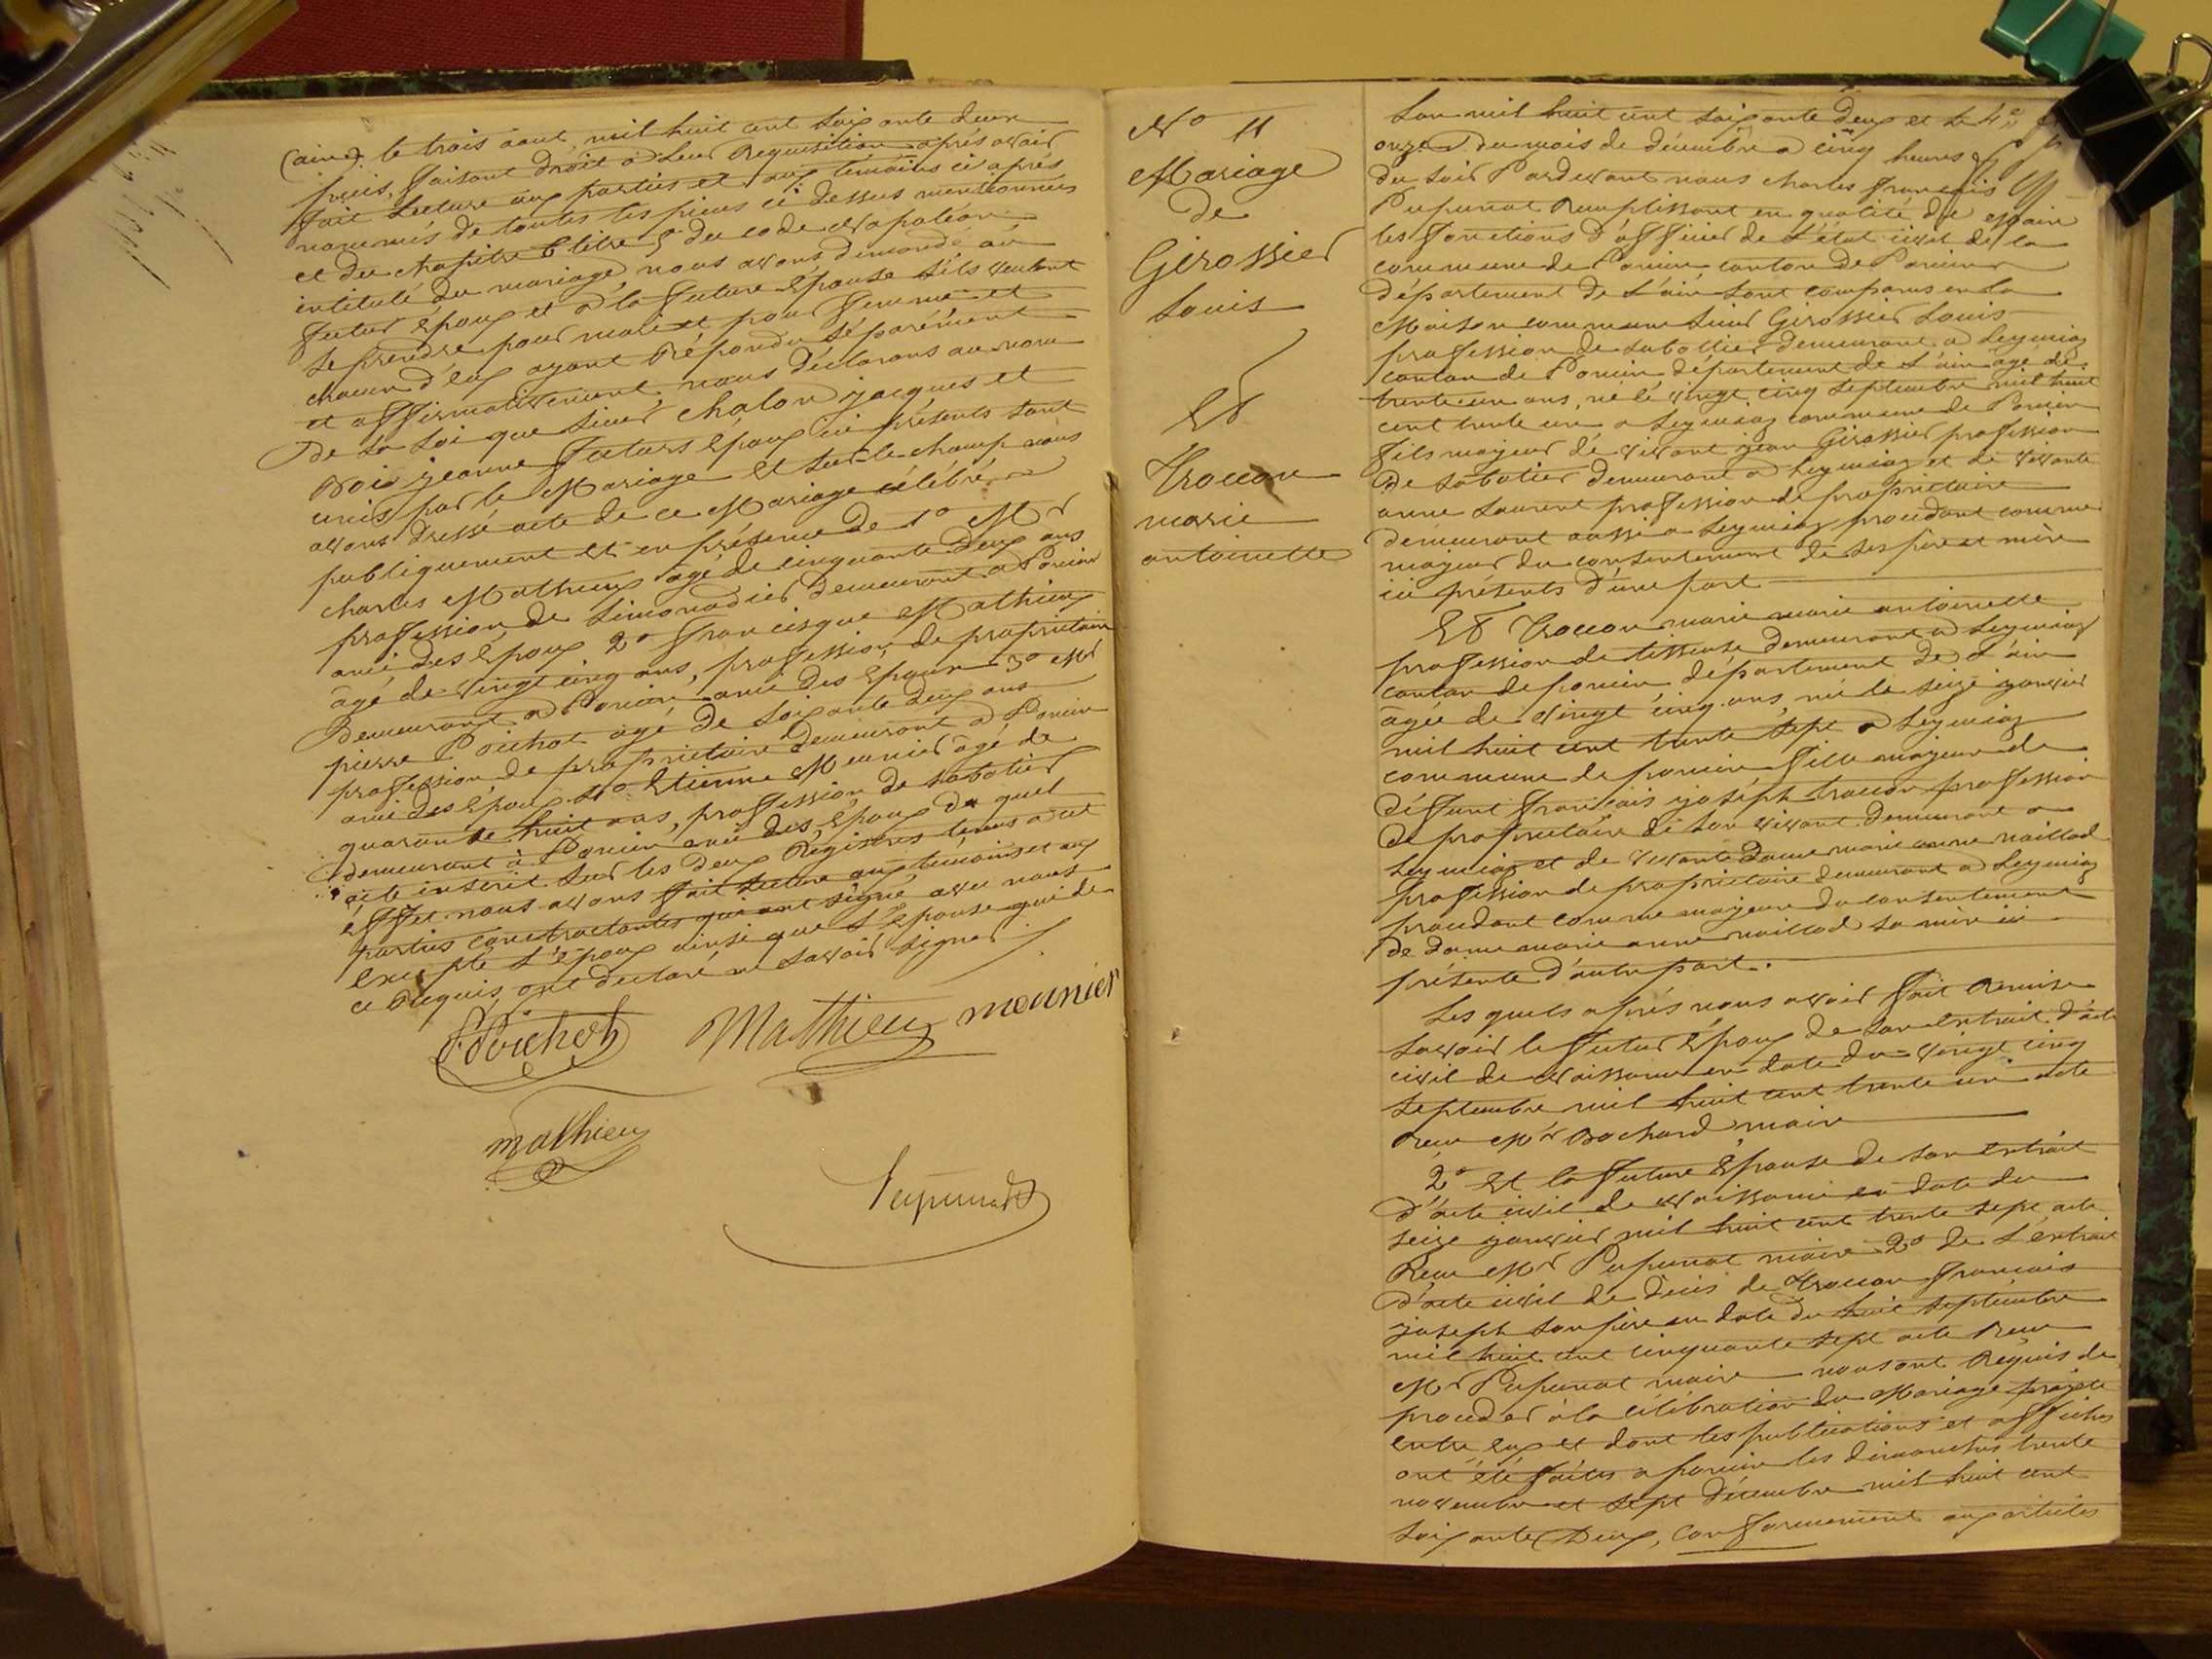 (ain) le trois aout mil huit cent soixante deux
puis, faisant droit à leur Requisition après avoir
fait lecture aux parties et aux témoins ci après
nommés de toutes les pieces ci dessus mentionnées
et du chapitre 6 titre 5 du code Napoléon
intitulé du mariage, nous avons demandé au
futur Epoux et à la future Epouse s'ils veulent
se prendre pour mari et pour femme et
chacun d'eux ayant Répondu séparément
et affirmativement, nous déclarons au nom
De la Loi que sieur Chalon jacques et
jeanne futurs Epoux ici présents sont
unis par le Mariage et sur le champ nous
avons Dressé acte de ce Mariage célébré
publiquement et en présence de 1o Mr
charles Mathieux agé de cinquante deux ans
profession de Limonadier demeurant à Poncin
ami des Epoux 2o francisque Mathieux
âgé de vingt cinq ans, profession de propriétaire
Demeurant à Poncin, ami des Epoux 3o Mr
pierre Poichot agé de soixante deux ans
profession de propriétaire demeurant à Poncin
ami des Epoux 4o Etienne Meunier âgé de
quarante huit ans, profession de sabotier
demeurant à Poncin ami des Epoux du quel
acte inscrit sur les deux Registres tenus à cet
Effet nous avons fait lecture aux témoins et aux
parties contractantes qui ont signé avec nous
Excepté L'Epoux ainsi que L'Epouse qui de
ce Requis ont declaré ne savoir signer
P. Poichot Mathieu meunier
mathieu
Pupunat
No 11
Mariage
De
Girossier
Louis
Et
Troccon
marie
antoinette
Lan mil huit cent soixante deux et le
onze Du mois de décembre à cinq heures
Du soir Pardevant nous charles françois
Pupunat Remplissant en qualité de Maire
les fonctions d'officier de L'état civil de la
commune de Poncin, canton de Poncin
département de L'ain sont comparus en la
Maison commune sieur Girossier Louis
profession de sabottier demeurant à Leymiaz
canton de Poncin département de L'ain âgé de
trente un ans, né le vingt cinq septembre mil huit
cent trente un à Leymiaz commune de Poncin
fils majeur de vivant jean Girossier profession
De sabotier demeurant à Leymiaz et de vivante
anne Laurent profession de propriétaire
demeurant aussi à Leymiaz procédant comme
majeur du consentement de ses père et mère
ici présents D'une part
Et Troccon marie marie antoinette
profession de tisseuse demeurant à Leymiaz
canton de poncin, département de L'ain
âgée de vingt cinq ans, née le seize janvier
mil huit cent trente sept à Leymiaz
commune de poncin fille majeure de
défunt françois joseph troccon profession
De propriétaire de son vivant demeurant à
Leymiaz et de vivante Dame marie anne
profession de propriétaire demeurant à Leymiaz
procédant comme majeure du consentement
de Dame marie anne sa mère ici
présente d'autre part.
Les quels après nous avoir fait Remise
savoir le futur Epoux de son extrait d'acte
civil de Naissance en date du vingt cinq
septembre mil huit cent trente un acte
Reçu Mr Bochard maire
2o Et la future Epouse de son extrait
d'acte civil de Naissance en date du
seize janvier mil huit cent trente sept acte
Reçu Mr Pupunat maire 2o de L'extrait
D'acte civil de Décès de Troccon françois
joseph son père en date du huit septembre
mil huit cent cinquante sept acte Reçu
Mr Pupunat maire nous ont Requis de
proceder à la célébration du Mariage projeté
entre eux et dont les publications et affiches
ont été faites à poncin les dimanches trente
novembre et sept décembre mil huit cent
soixante Deux, Conformement aux articles